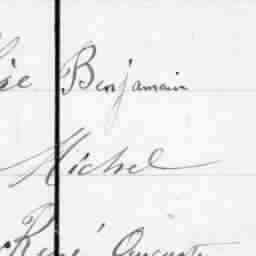 Benjamin
Michel
René Auguste